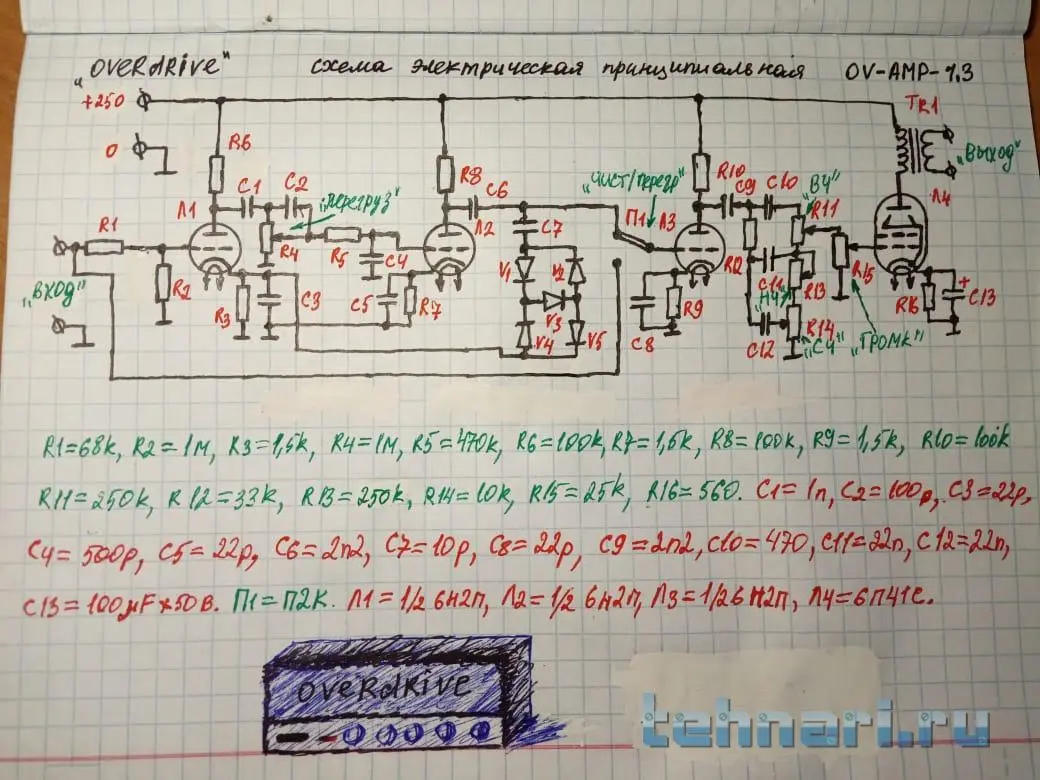 „OVERDRIVE" схема электрическая принципиальная OV-AMP-1.3
+250
TR1
0
R6
„ВЫХОД"
C1 C2
R8
C6
„ЧИСТ/перегр"
R10
C9
C10
„ВЧ"
Л1
„перегруз"
Л2
П1
Л3
R11
Л4
R1
R4
R5
C4
C7
R12
R15
R2
V1
V2
C11
R13
R16
C13
+
„ВХОД"
R3
C3
C5
R7
V3
C8
R9
„НЧ"
V4
V5
C12
R14
„СЧ"
„ГРОМК"
R1=68k, R2=1м, R3=1,5k, R4=1м, R5=470k, R6=100k, R7=1,5k, R8=100k, R9=1,5k, R10=100k
R11=250k, R12=33k, R13=250k, R14=10k, R15=25k, R16=560. C1=1n, C2=100p, C3=22p,
C4=500p, C5=22p, C6=2n2, C7=10p, C8=22p, C9=2n2, C10=470, C11=22n, C12=22n,
C13=100μF×50В. П1=П2К. Л1=1/2 6н2п, Л2=1/2 6н2п, Л3=1/2 6н2п, Л4=6п41с.
OVERDRIVE
tehnari.ru